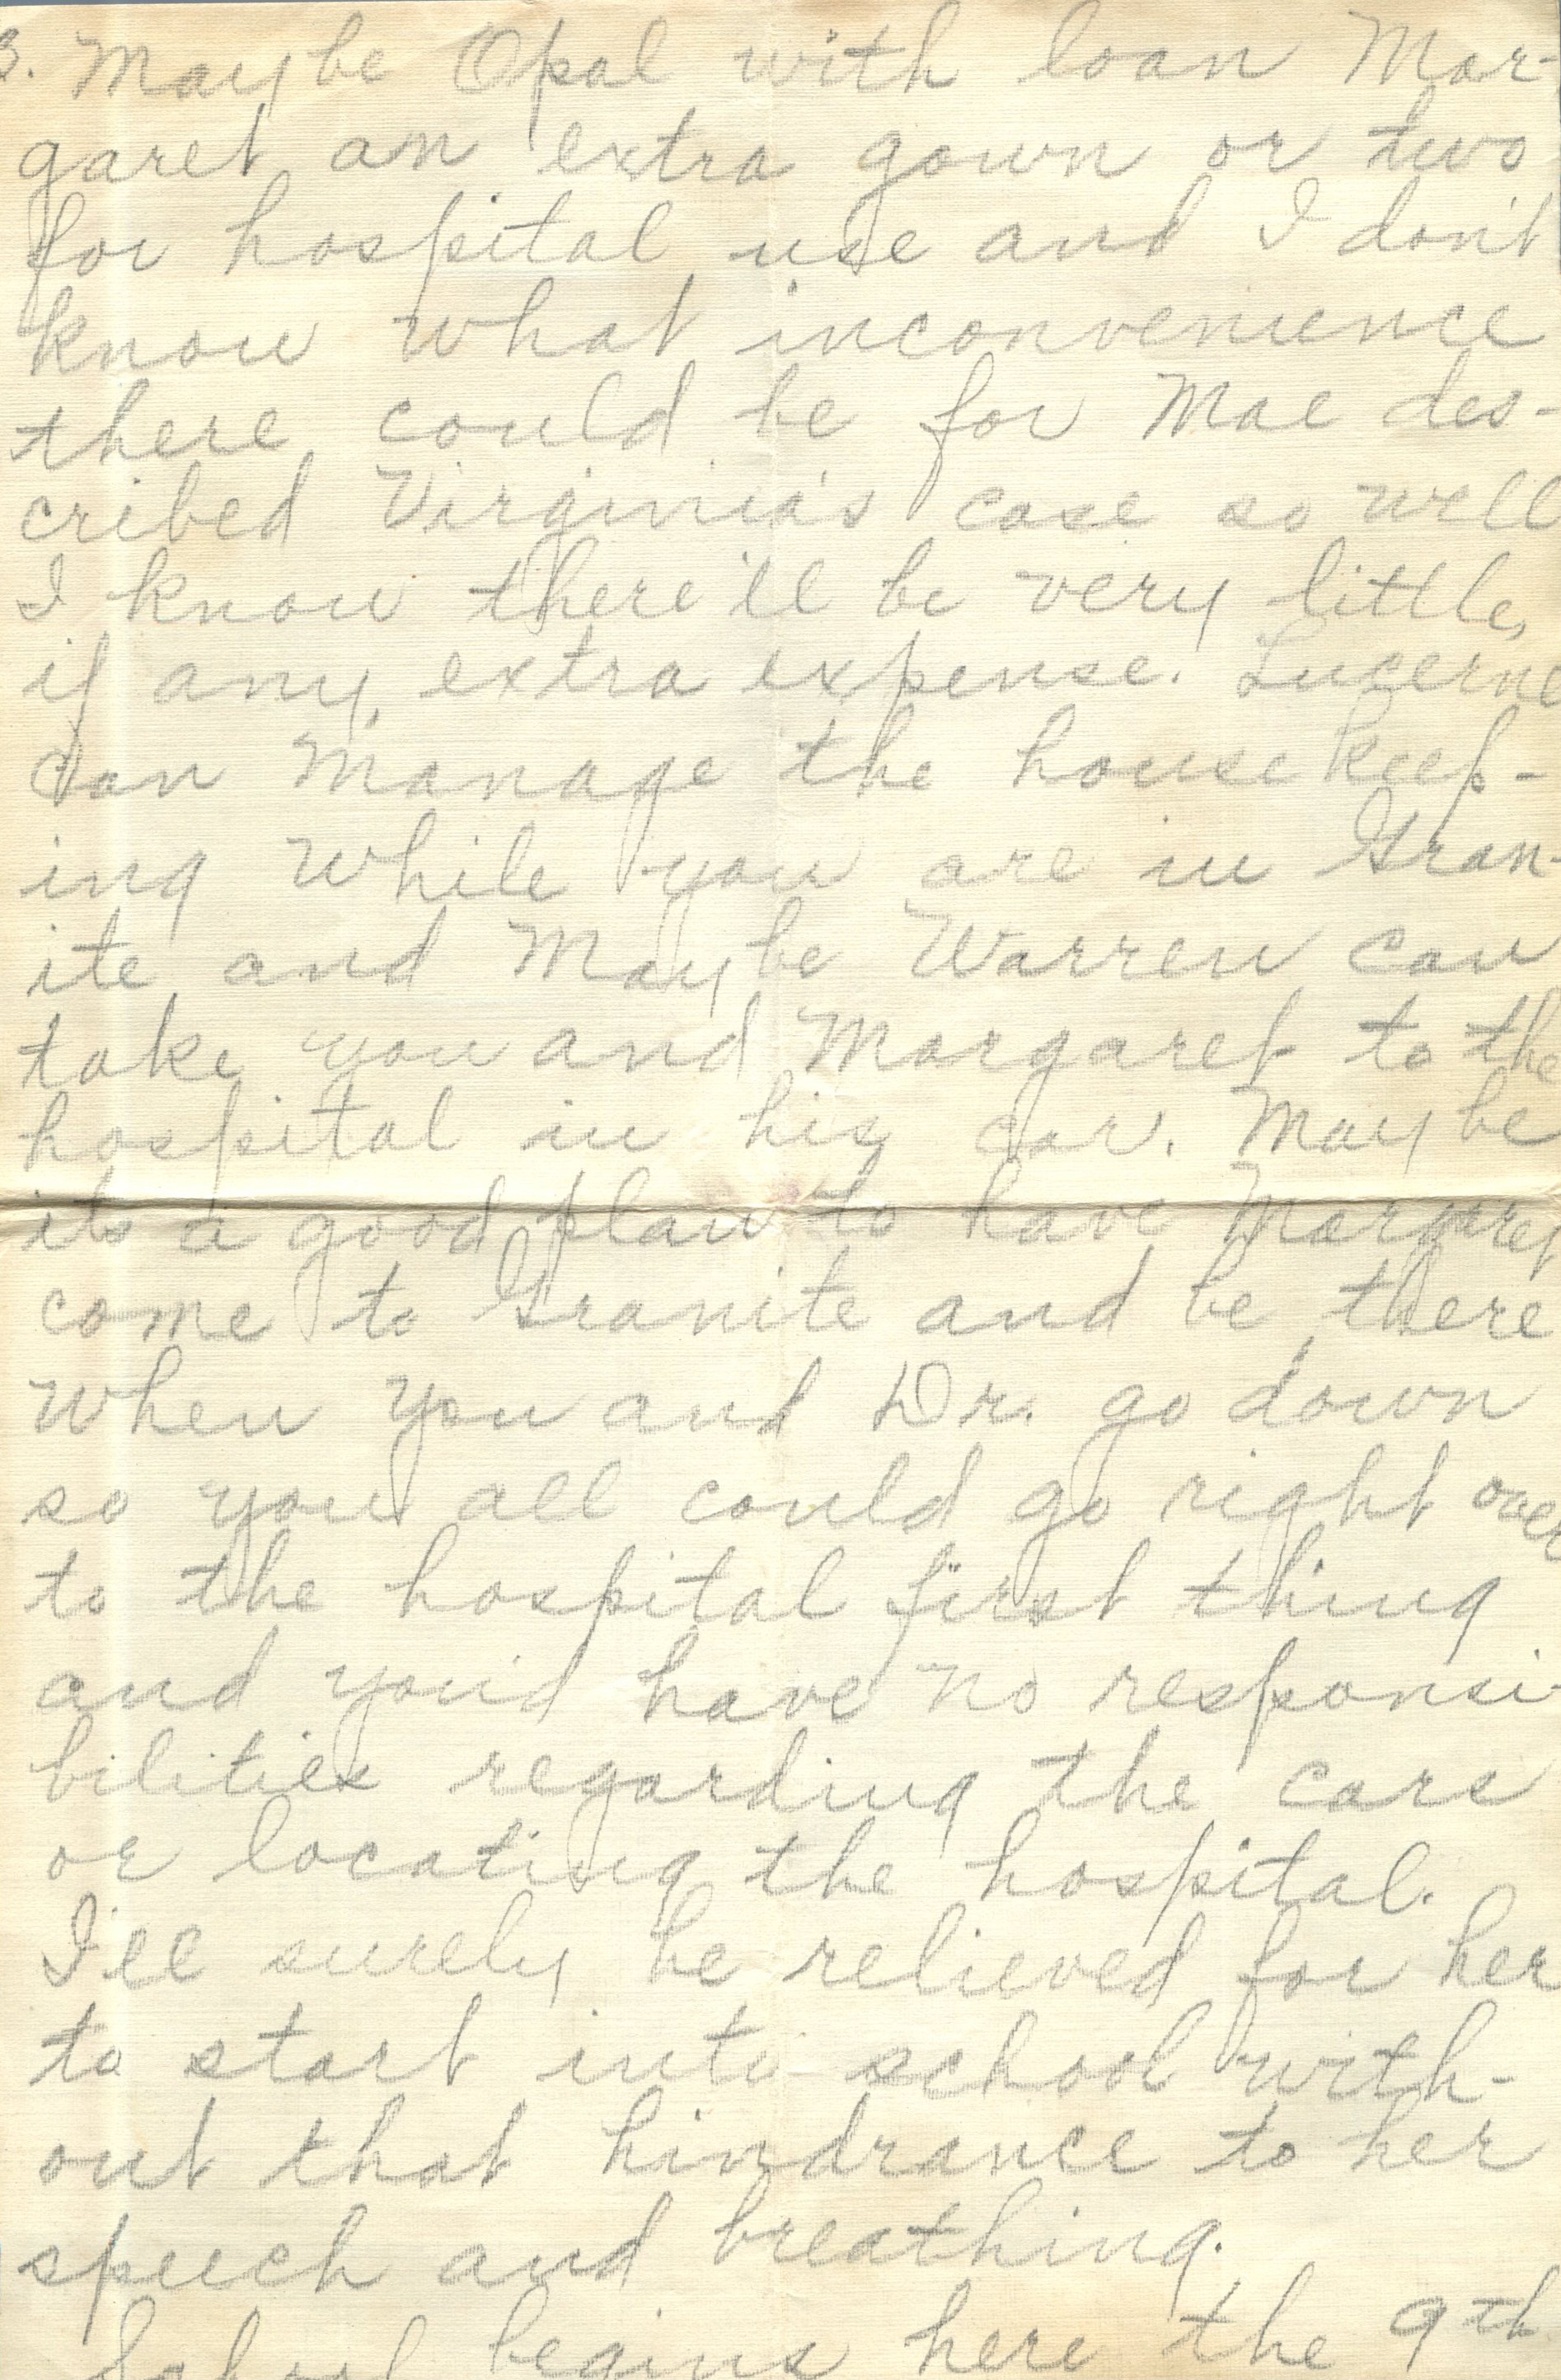 3. Maybe Opal with loan Mar-
garet an extra gown or two
for hospital use and I don't
know what inconvenience
there could be for Mae des-
cribed Virginia's case so well
I know there'll be very little,
if any, extra expense. Lucerne
can manage the housekeep-
ing while you are in Gran-
ite and Maybe Warren can
take you and Margaret to the
hospital in his car. Maybe
its a good plan to have Margaret
come to Granite and be there
when you and Dr. go down
so you all could go right over
to the hospital first thing
and you'd have no responsi-
bilities regarding the cars
or locating the hospital.
I'll surely be relieved for her
to start into school with-
out that hindrance to her
speech and breathing.
School begins here the 9th